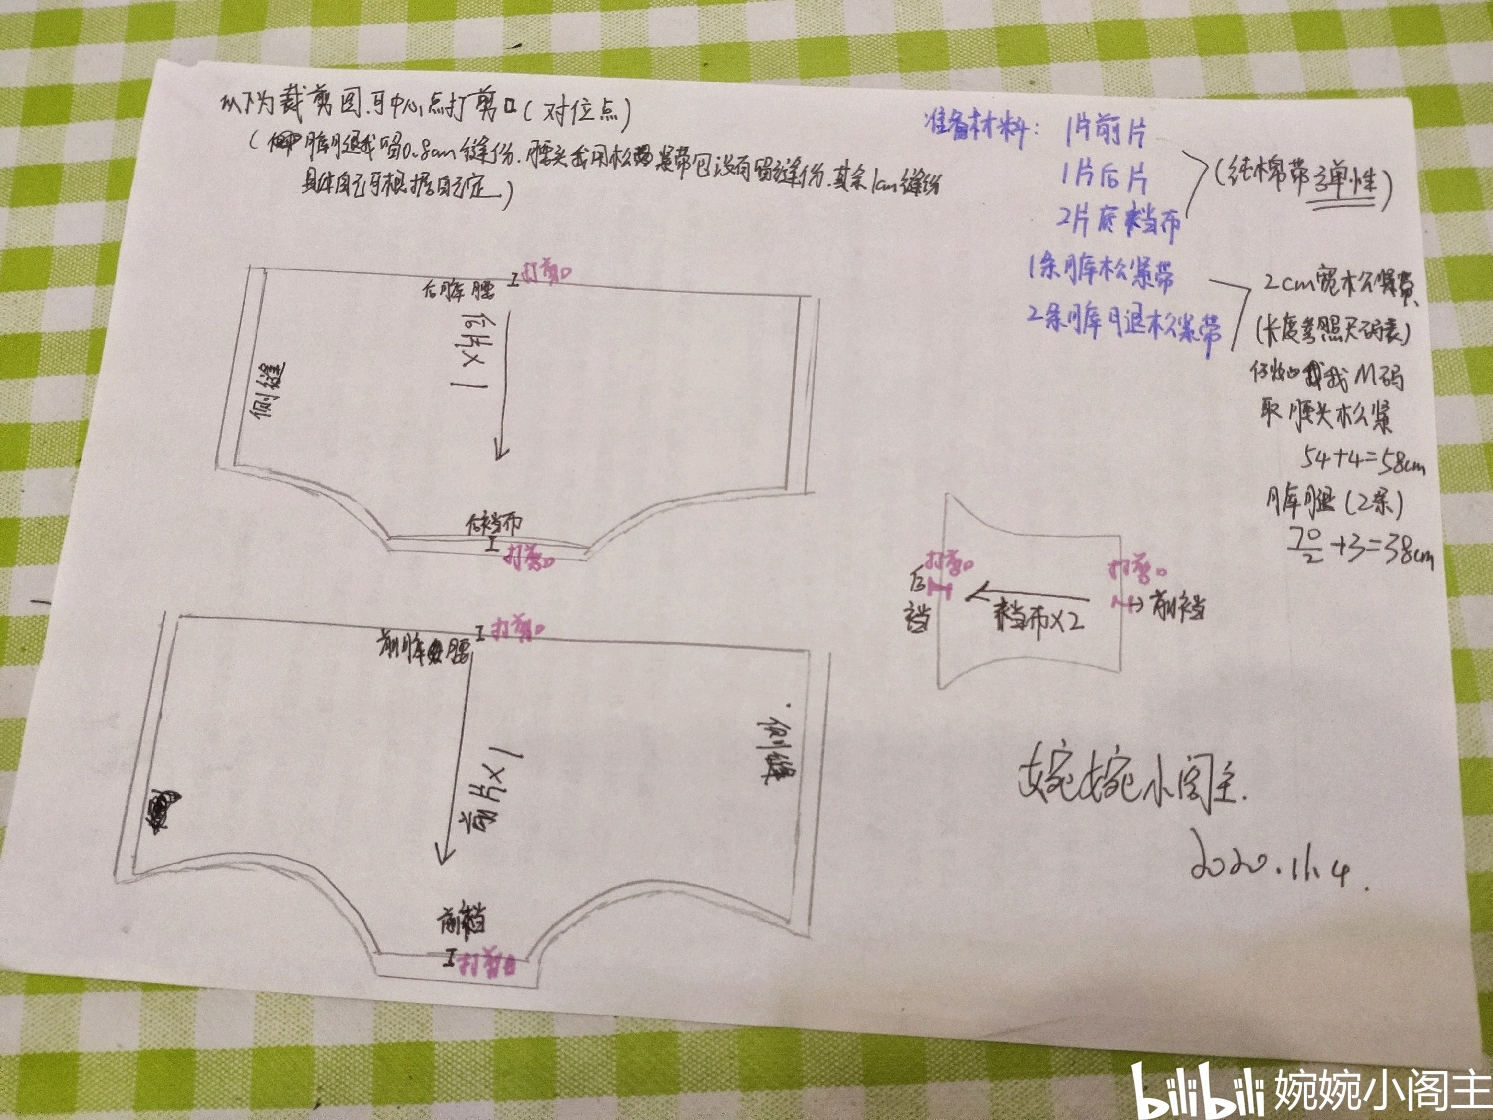 以下为裁剪图，于中心点打剪口(对位点)
(裤腿我留0.8cm缝份，腰头我用松紧带包没有留缝份，其余1cm缝份
具体自己可根据自己定)
准备材料：1片前片
1片后片
2片底裆布
(纯棉带弹性)
1条裤松紧带
2条裤腿松紧带
2cm宽松紧带
(长度参照尺码表)
例如我M码
取腰头松紧
54+4=58cm
裤腿(2条)
70/2+3=38cm
打剪口
后裤腰
后片×1
侧缝
后裆布
打剪口
打剪口
前裤腰
前片×1
侧缝
前裆
打剪口
打剪口
后裆
裆布×2
打剪口
前裆
婉婉小阁主.
2020.11.4.
bilibili 婉婉小阁主